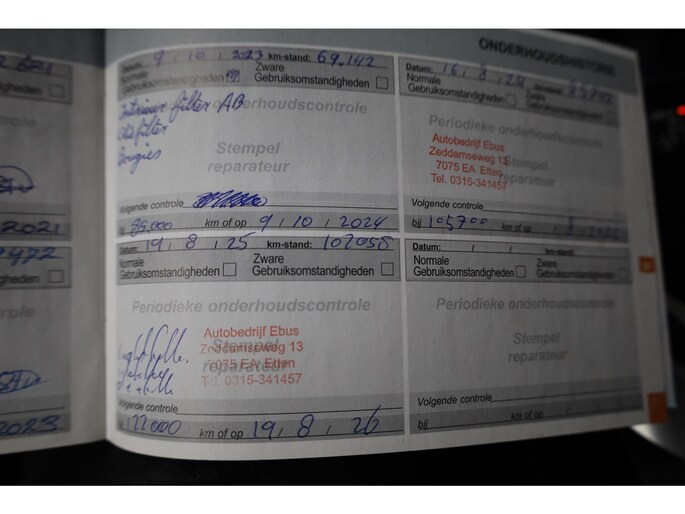 ONDERHOUDSHISTORIE
Datum: 9 , 10 , 2023 km-stand: 69.142
Normale Zware
Gebruiksomstandigheden Gebruiksomstandigheden
Interieur filter AB
Oliefilter
Bougies
Periodieke onderhoudscontrole
Stempel
reparateur
Volgende controle
85.000 km of op 9 , 10 , 2024
Datum: 16 , 8 , 24
Normale
Gebruiksomstandigheden
Periodieke onderhoudscontrole
Stempel
reparateur
Autobedrijf Ebus
Zeddamseweg 13
7075 EA Etten
Tel. 0315-341457
Volgende controle
bij 105700 km of op
Datum: 19 , 8 , 25 km-stand: 102058
Normale Zware
Gebruiksomstandigheden Gebruiksomstandigheden
Periodieke onderhoudscontrole
Stempel
reparateur
Autobedrijf Ebus
Zeddamseweg 13
7075 EA Etten
Tel. 0315-341457
Volgende controle
122000 km of op 19 , 8 , 26
Datum: / / km-stand:
Normale Zware
Gebruiksomstandigheden Gebruiksomstandigheden
Periodieke onderhoudscontrole
Stempel
reparateur
Volgende controle
bij km of op
2021
2023